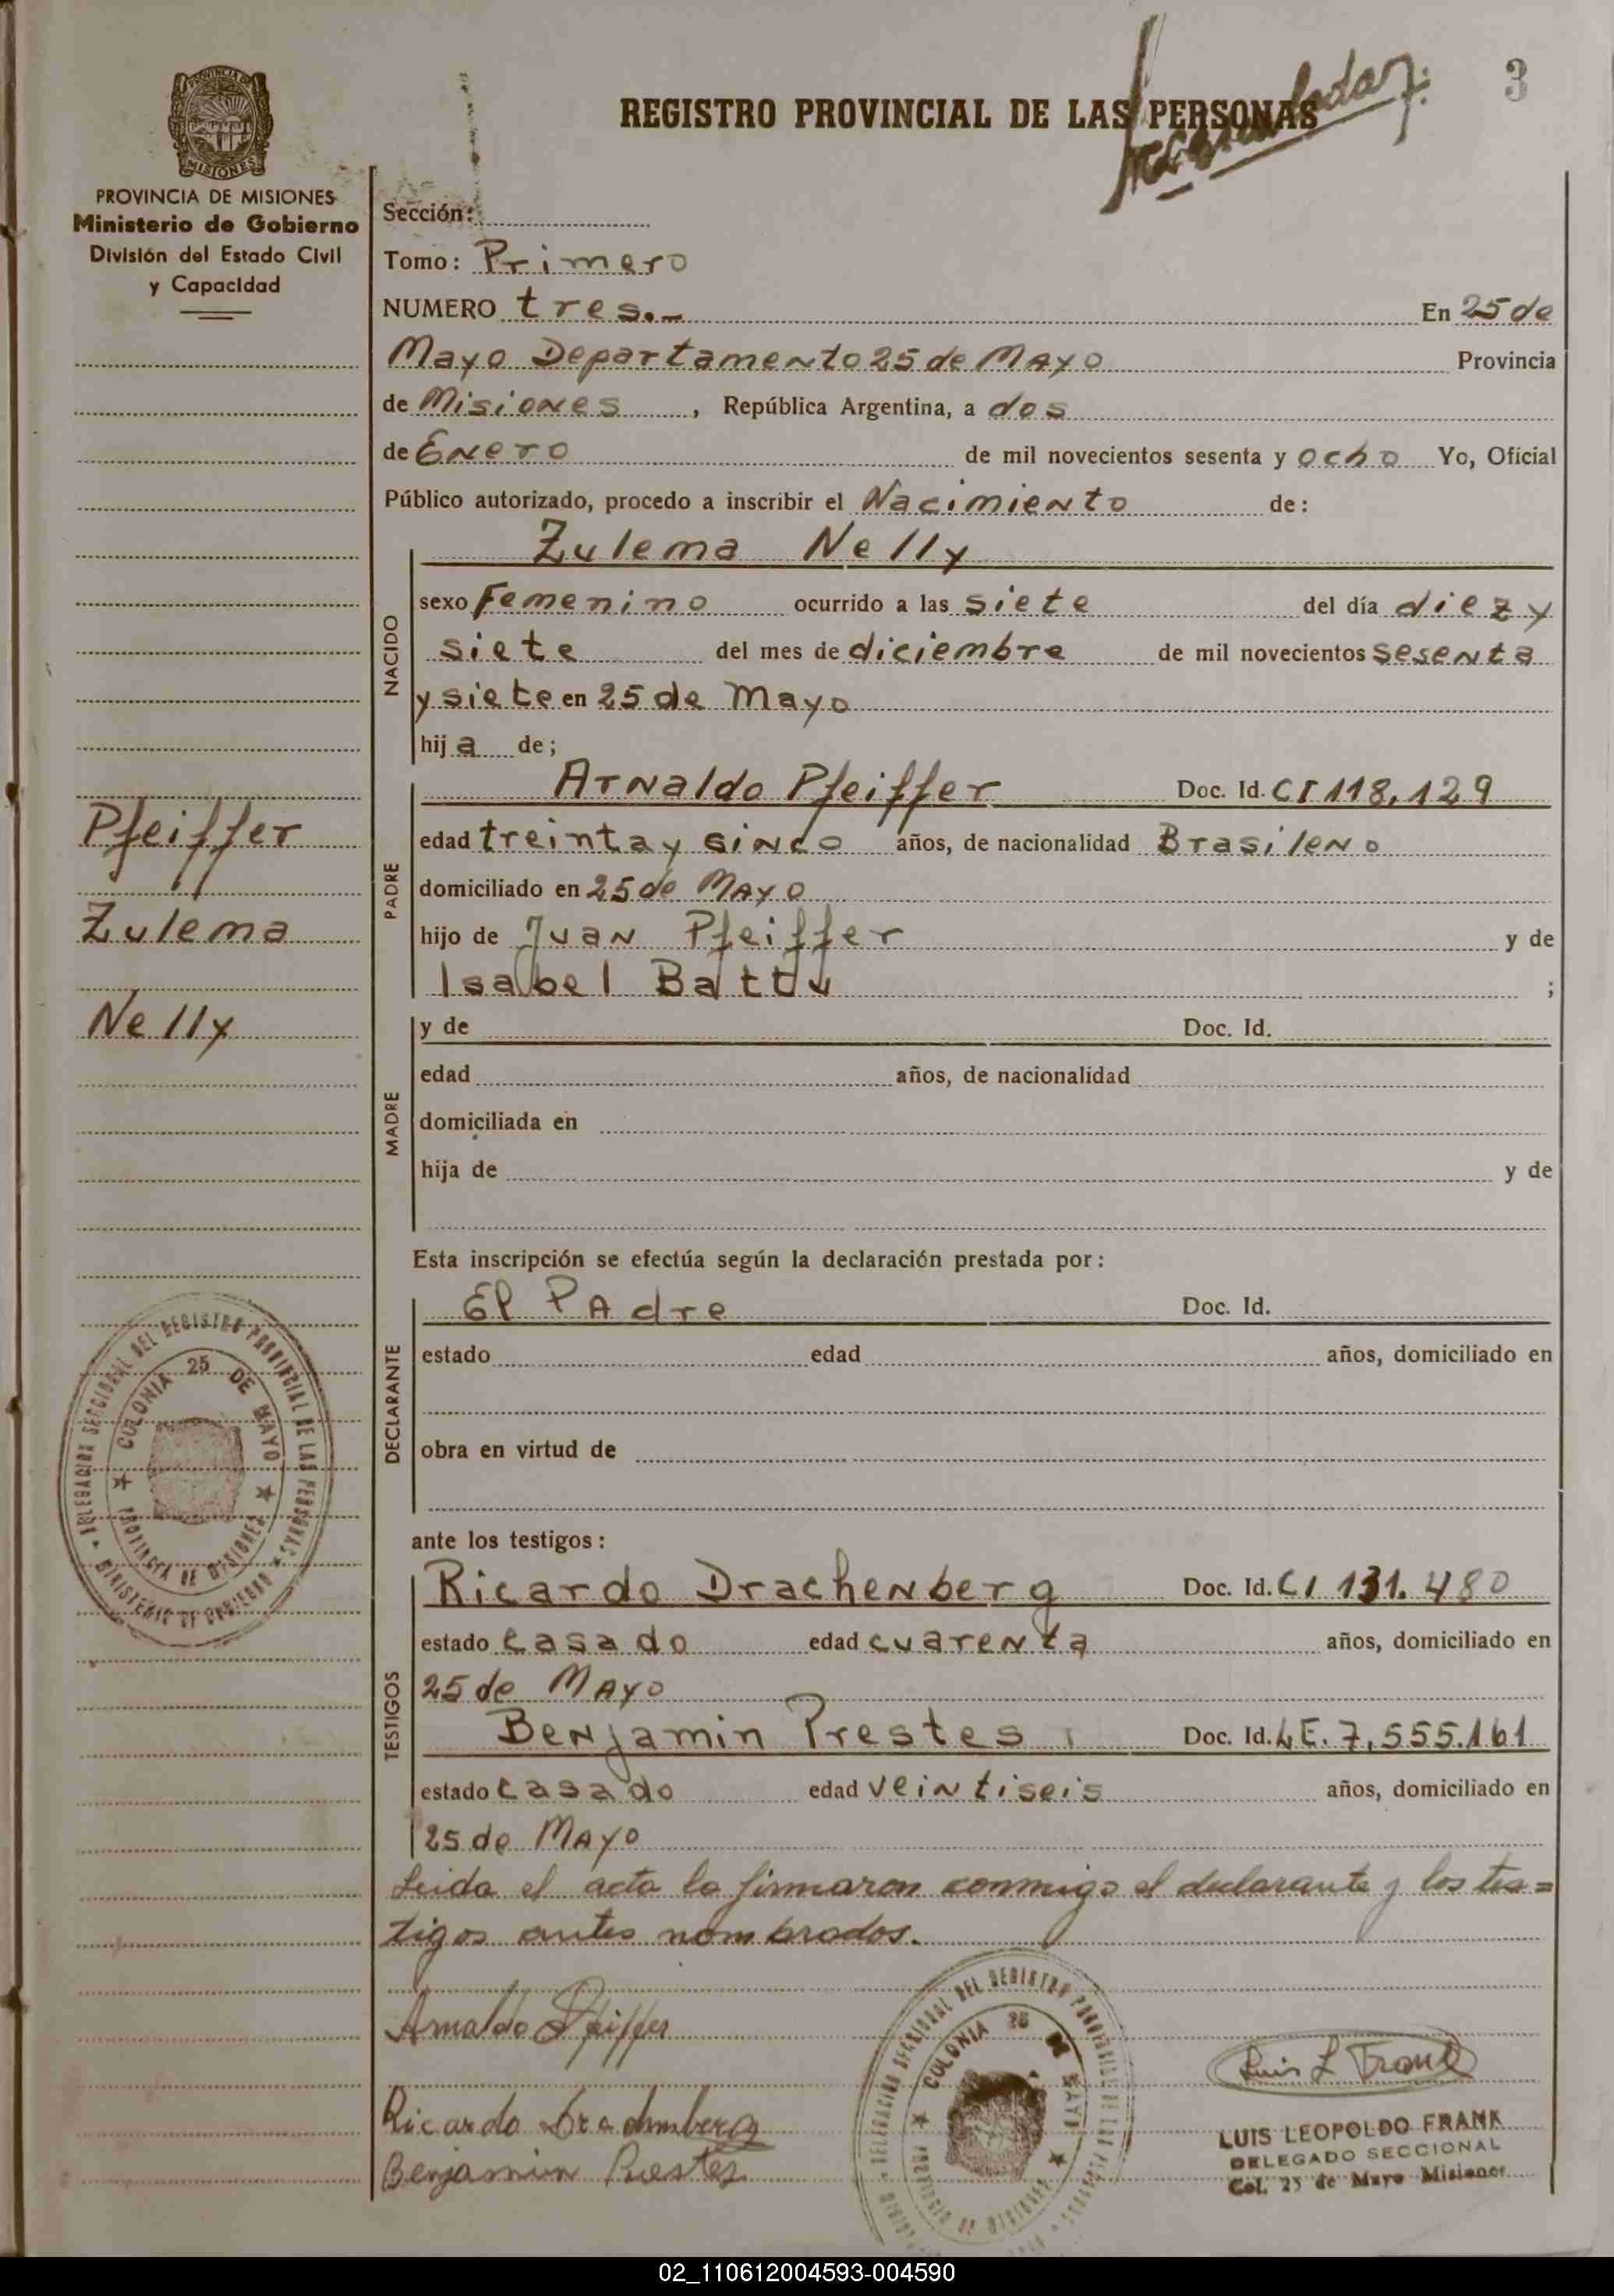 3
REGISTRO PROVINCIAL DE LAS PERSONAS
PROVINCIA DE
MISIONES
PROVINCIA DE MISIONES
Ministerio de Gobierno
División del Estado Civil
y Capacidad
Sección:
Tomo: Primero
NUMERO tres.- En 25 de
Mayo Departamento 25 de Mayo Provincia
de Misiones, República Argentina, a dos
de Enero de mil novecientos sesenta y ocho Yo, Oficial
Público autorizado, procedo a inscribir el Nacimiento de:
Zulema Nelly
NACIDO
sexo Femenino ocurrido a las siete del día diez y
siete del mes de diciembre de mil novecientos sesenta
y siete en 25 de Mayo
hija de;
Arnaldo Pfeiffer Doc. Id. CI 118,129
PADRE
edad treinta y sinco años, de nacionalidad Brasileno
domiciliado en 25 de Mayo
hijo de Juan Pfeiffer y de
Isabel Battu ;
Pfeiffer
Zulema
Nelly
MADRE
y de Doc. Id.
edad años, de nacionalidad
domiciliada en
hija de y de
Esta inscripción se efectúa según la declaración prestada por:
DECLARANTE
El Padre Doc. Id.
estado edad años, domiciliado en
obra en virtud de
DELEGACION SECCIONAL DEL REGISTRO PROVINCIAL DE LAS PERSONAS
MINISTERIO DE GOBIERNO
COLONIA 25 DE MAYO
PROVINCIA DE MISIONES
ante los testigos:
TESTIGOS
Ricardo Drachenberg Doc. Id. CI 131.480
estado casado edad cuarenta años, domiciliado en
25 de Mayo
Benjamin Prestes Doc. Id. LE. 7,555.161
estado casado edad veintiseis años, domiciliado en
25 de Mayo
Leida el acta la firmaron conmigo el declarante y los tes=
tigos antes nombrados.
Arnaldo Pfeiffer
Ricardo Drachenberg
Benjamin Prestes
DELEGACION SECCIONAL DEL REGISTRO PROVINCIAL DE LAS
COLONIA 25 DE MAYO
PROVINCIA DE MISIONES
Luis L Frank
LUIS LEOPOLDO FRANK
DELEGADO SECCIONAL
Col. 25 de Mayo Misiones
02_110612004593-004590